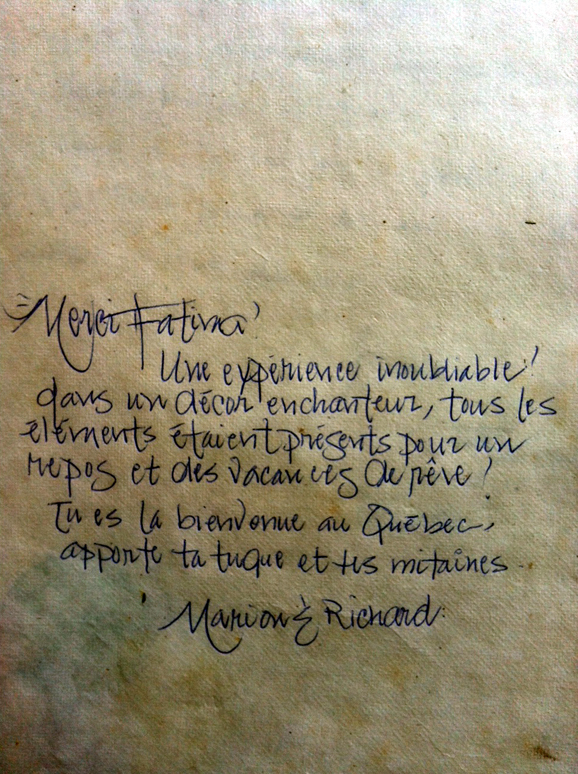 Merci Fatima!
Une expérience inoubliable!
dans un décor enchanteur, tous les
éléments étaient présents pour un
repos et des vacances de rêve!
Tu es la bienvenue au Québec,
apporte ta tuque et tes mitaines.
Marion & Richard.